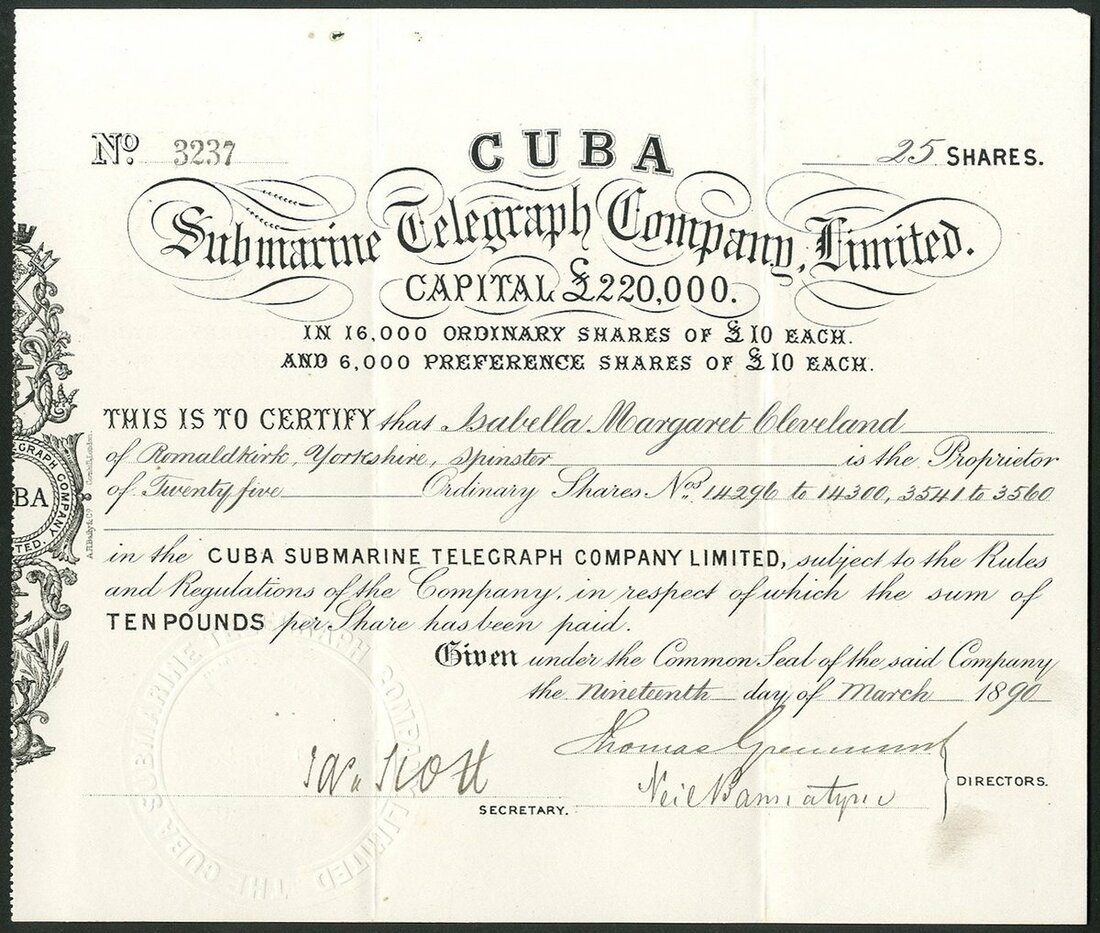 No. 3237
25 SHARES.
CUBA
Submarine Telegraph Company, Limited.
CAPITAL £220,000.
IN 16,000 ORDINARY SHARES OF £10 EACH.
AND 6,000 PREFERENCE SHARES OF £10 EACH.
THIS IS TO CERTIFY that Isabella Margaret Cleveland
of Romaldkirk, Yorkshire, Spinster is the Proprietor
of Twenty five Ordinary Shares Nos. 14296 to 14300, 3541 to 3560
in the CUBA SUBMARINE TELEGRAPH COMPANY LIMITED, subject to the Rules
and Regulations of the Company, in respect of which the sum of
TEN POUNDS per Share has been paid.
Given under the Common Seal of the said Company
the Nineteenth day of March 1890
Thomas
Neil Bannatyne
DIRECTORS.
Jas. Scott
SECRETARY.
THE CUBA SUBMARINE TELEGRAPH COMPANY LIMITED
EGRAPH COMPANY
BA
TED.
Cornhill, London.